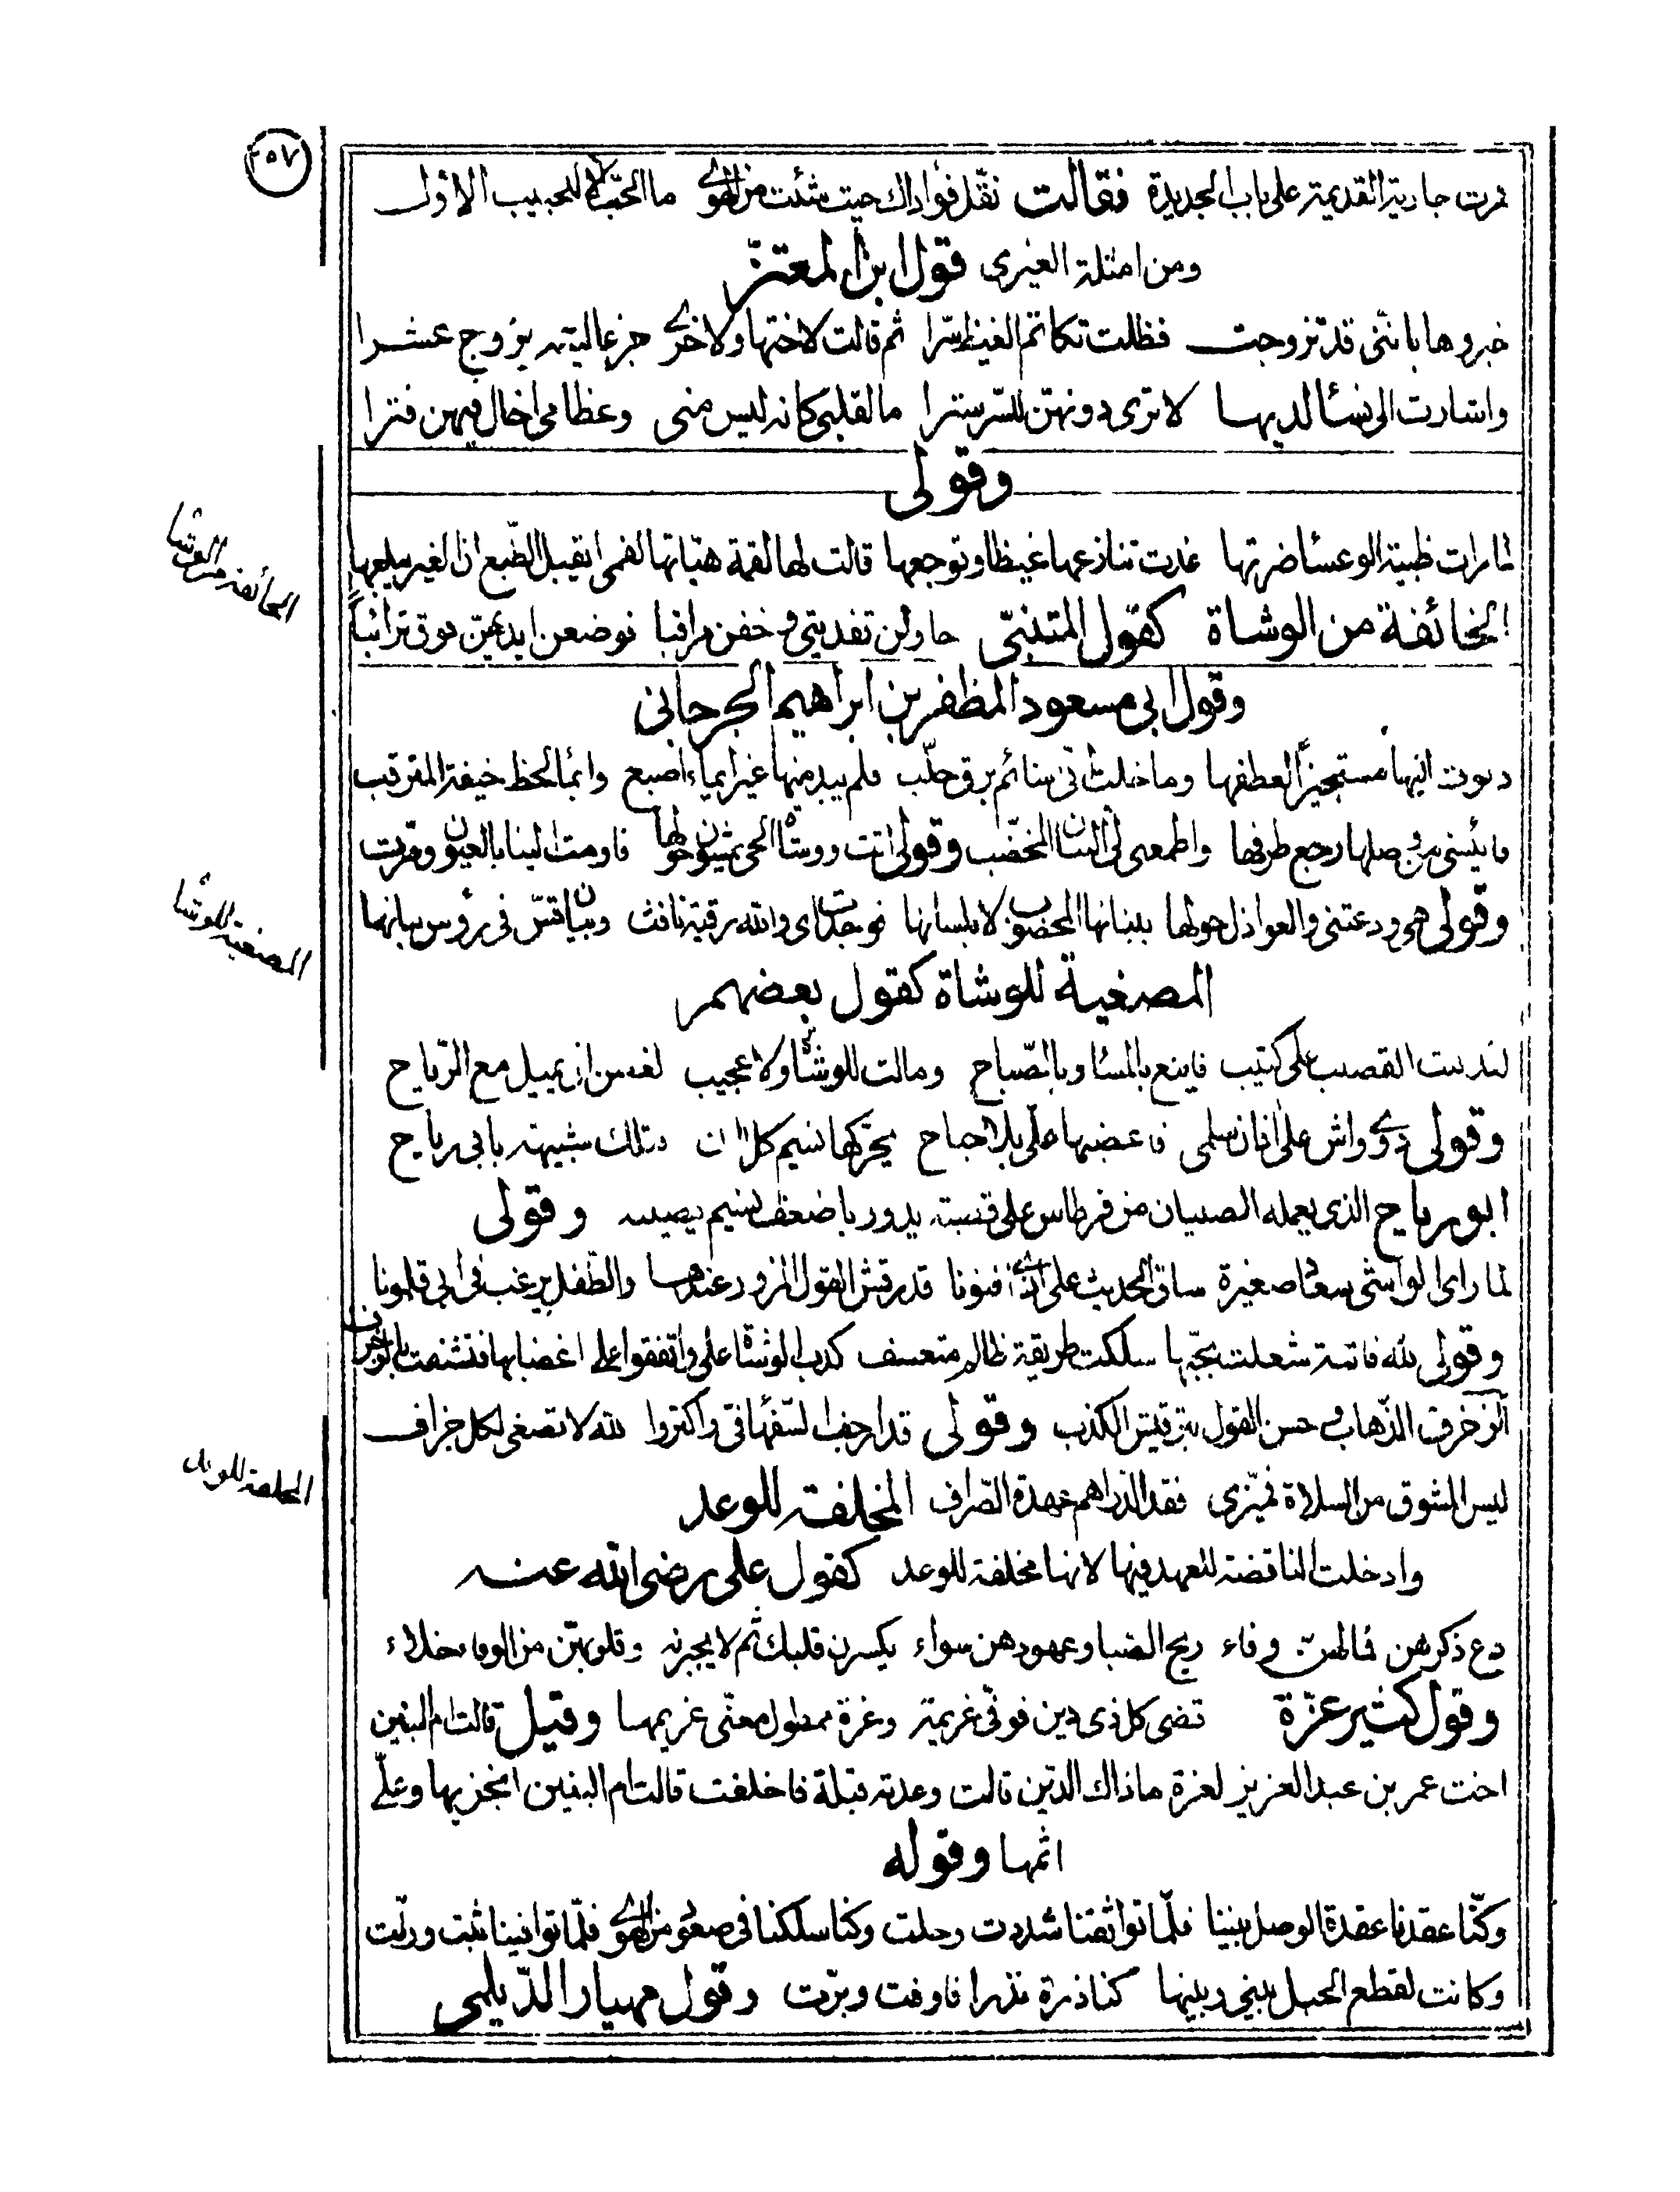 ٢٥٧
مرت جارية القديمة على باب الجديدة فقالت نقّل فؤادك حيث شئت من الهوى ما الحبّ الا للحبيب الاوّل
ومن امثلة الغيرى قول ابن المعتزّ
خبروها بانّنى قد تزوجت فظلت تكاتم الغيظ سرّا ثم قالت لاختها ولاخرى جزعا ليته يزوج عشرا
واشارت الى نسآء لديها لا ترى دونهنّ للسّر سترا ما لقلبى كانه ليس منى وعظامى اخال فيهن فترا
وقولى
لما رات ظبية الوعسا ضرتها غدت تنازعها غيظا وتوجعها قالت لها لقمة هيّأتها لفمى ايقبل الطّبع ان الغير يبلعها
الخائفة من الوشاة كقول المتنبّى حاولن تفديتى وخفن مراقبا فوضعن ايديهنّ فوق ترائبا
وقول ابى مسعود المظفر بن ابراهيم الجرجانى
دعوت اليها مستجيرًا لعطفها وما خلت انّى شائم برق خلّب فلم يبد منها غير ايماء اصبع وايما لحظ خيفة المترقب
فايئسنى من وصلها رجع طرفها واطمعنى لى البنان المخضّب وقولى اتت ووشاة الحى يمشون حولها فاومت الينا بالعيون ومرّت
وقولى هى ودعتنى والعواذل حولها ببنانها المخضوب لا بلسانها فوجدت اى والله رقية نافث وبيان قسّ فى رؤس بنانها
المصغية للوشاة كقول بعضهم
لقد نبت القضيب على كثيب فاينع بالمسا وبالصّباح ومالت للوشاة ولا عجيب لغصن ان يميل مع الرّياح
وقولى دوى واش على افنان سلمى فاغضبها على بلا جناح يحرّكها نسيم كل ان وتلك شبيهة بابى رياح
ابو رياح الذى يعمله الصبيان من قرطاس على قصبة يدور باضعف نسيم يصيبه وقولى
لما راى الواشى سعادا صغيرة ساق الحديث على فنونا قد رقش القول المزور عندها والطفل يرغب فى ابى قلمونا
وقولى لله فاتنة شعلت بحبّها سلكت طريقة ظالم متعسف كذب الوشاة على واتفقوا على اغضابها فتشنفت بالزخرف
الزخرف الذّهاب وحسن القول بترقيش الكذب وقولى قد ارجف السّفهآ فىّ واكثروا لله لا تصغى لكل جزاف
ليس المشوق من السلاة فميّزى فقد الدراهم عهدة الصّراف المخلفة للوعد
وادخلت الناقضة للعهد فيها لانها مخلفة للوعد كقول على رضى الله عنه
دع ذكرهن فما لهنّ وفاء ريح الصّبا وعهودهن سواء يكسرن قلبك ثم لا يجبرنه وقلوبهنّ من الوفاء خلاء
وقول كثير عزّة قضى كل ذى دين فوفّى غريمه وعزة ممطول معنّى غريمها وقيل قالت ام البنين
اخت عمر بن عبد العزيز لعزة ما ذاك الدّين قالت وعدته قبلة فاخلفت قالت ام البنين انجزيها وعلىّ
اثمها وقوله
وكنّا عقدنا عقدة الوصل بيننا فلمّا تواثقنا شددت وحلت وكنا سلكنا فى صعود من الهوى فلمّا توافينا ثبت وزلّت
وكانت لقطع الحبل بينى وبينها كناذرة نذرا فاوفت وبرّت وقول مهيار الدّيلمى
الخائفة من الوشاة
المصغية للوشاة
المخلفة للوعد